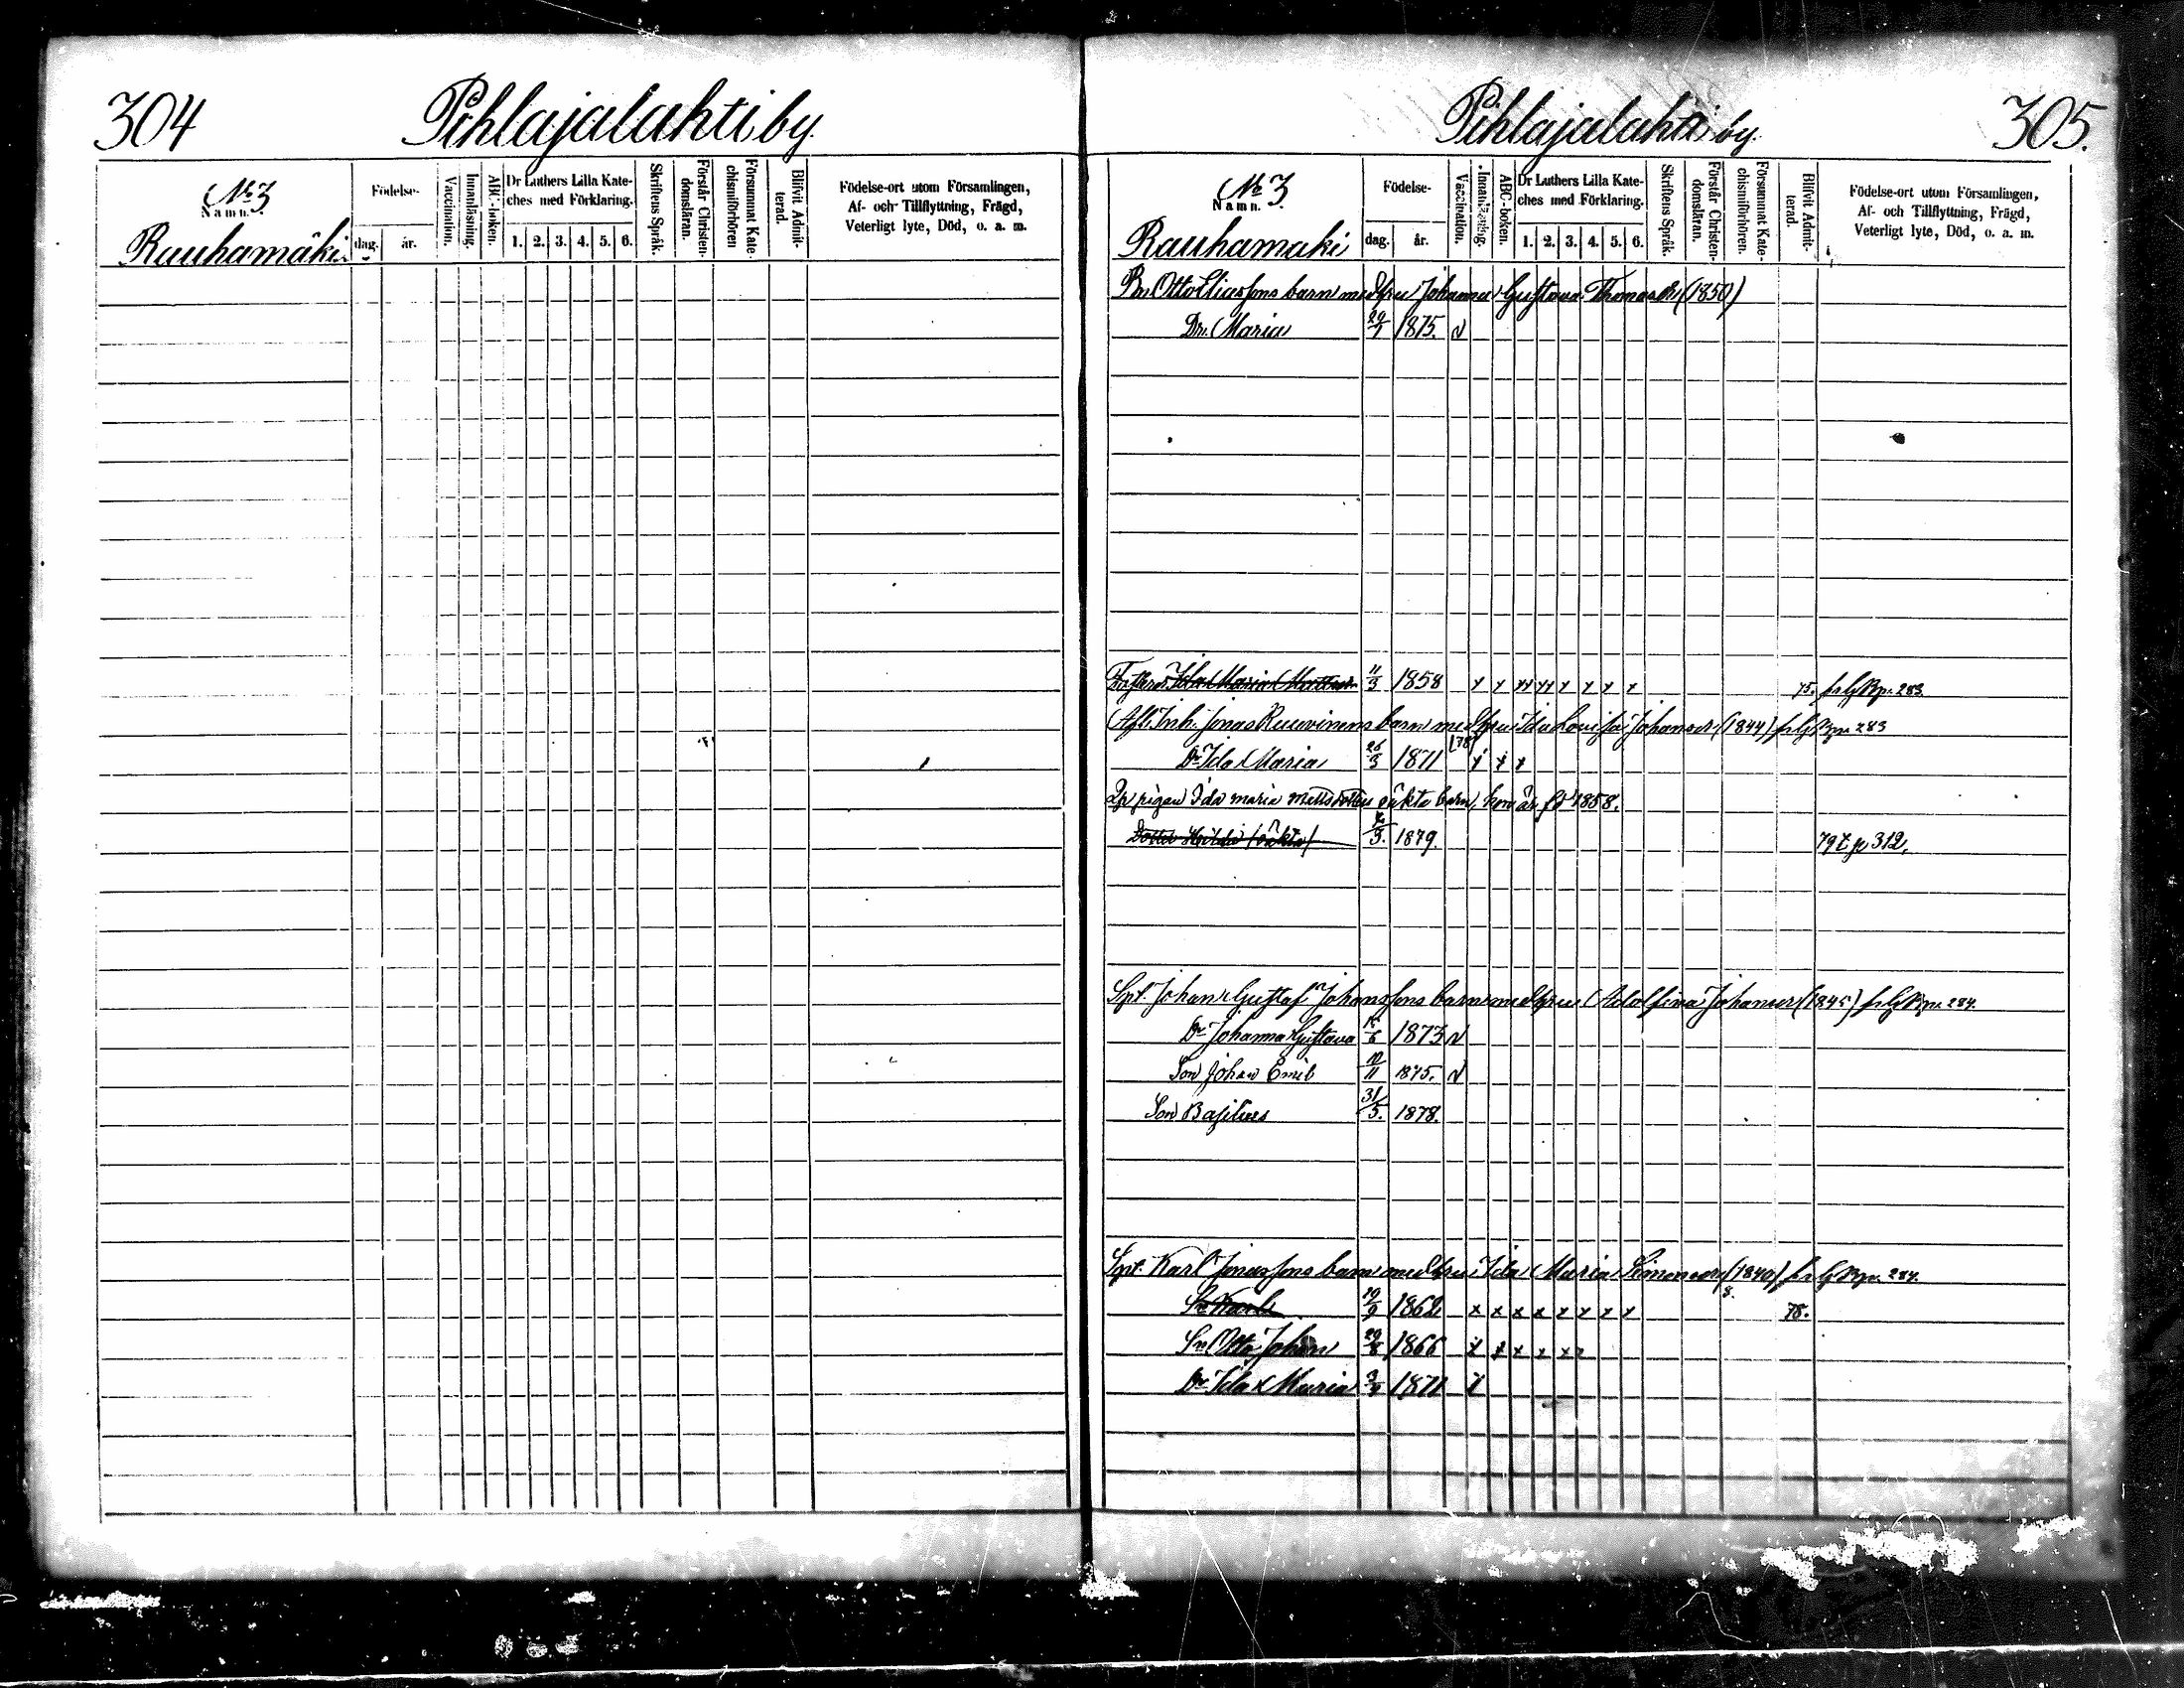 304
Pihlajalahti by.
No 3
Namn.
Rauhamäki
Födelse-
dag.
år.
Vaccination.
Innanläsning.
ABC-boken.
Dr Luthers Lilla Kate-
ches med Förklaring.
1. 2. 3. 4. 5. 6.
Skriftens Språk.
Förstår Christen-
domsläran.
Försummat Kate-
chismiförhören
Blifvit Admit-
terad.
Födelse-ort utom Församlingen,
Af- och Tillflyttning, Frägd,
Veterligt lyte, Död, o. a. m.
Pihlajalahti by.
305.
No 3
Namn.
Rauhamäki
Födelse-
dag.
år.
Vaccination.
Innanläsning.
ABC-boken.
Dr Luthers Lilla Kate-
ches med Förklaring.
1. 2. 3. 4. 5. 6.
Skriftens Språk.
Förstår Christen-
domsläran.
Försummat Kate-
chismiförhören.
Blifvit Admit-
terad.
Födelse-ort utom Församlingen,
Af- och Tillflyttning, Frägd,
Veterligt lyte, Död, o. a. m.
Bn. Otto Eliassons barn med hru Johanna Gustava Thomasdr (1850)
Dr. Maria 29/1 1875. v
Ida Maria Mattsdr 11/3 1858 x x xx xx x x x x 75. fr G Bp. 283.
Afl. Inh. Jonas Ruuvinens barn med hru Ida Lovisa Johansdr (1844) fr G Bp. 283
(78)
Dr Ida Maria 26/3 1871 x x x
pigan Ida Maria Mattsdotters oäkta barn, hon är fd 1858.
Dotter Hilda (oäkta) /3. 1879. 79 t. p 312.
Spt. Johan Gustaf Johanssons barn med hru Adolfina Johansdr (1845) fr G Bp. 284.
Dr Johanna Gustava 15/6 1873 v
Son Johan Emil 12/11 1875. v
Son Basilius 31/5. 1878.
Spt. Karl Jonassons barn med hru Ida Maria Simonsdr (1840) fr G Bp. 284.
Sn Karl 19/9 1862 x x x x x x x x 8. 78.
Sn Otto Johan 29/8 1866 x x x x x x
Dr Ida Maria 1871 x